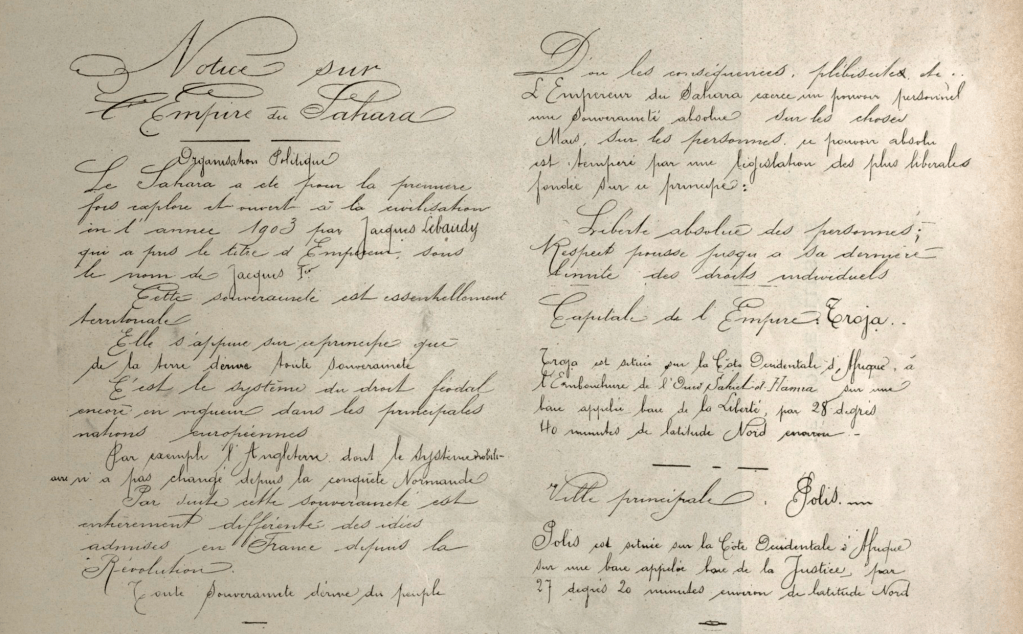 Notice sur
l'Empire du Sahara
Organisation Politique
Le Sahara a été pour la première
fois exploré et ouvert à la civilisation
en l'année 1903 par Jacques Lebaudy
qui a pris le titre d'Empereur, sous
le nom de Jacques Ier
Cette souveraineté est essentiellement
territoriale
Elle s'appuie sur ce principe que
de la terre dérive toute souveraineté
C'est le système du droit féodal
encore en vigueur dans les principales
nations européennes
Par exemple l'Angleterre dont le système nobili-
aire n'a pas changé depuis la conquête Normande
Par suite cette souveraineté est
entièrement différente des idées
admises en France depuis la
Révolution.
Toute souveraineté dérive du peuple
D'où les conséquences, plébiscites, etc..
L'Empereur du Sahara exerce un pouvoir personnel
une souveraineté absolue sur les choses
Mais, sur les personnes, ce pouvoir absolu
est tempéré par une législation des plus libérales
fondée sur ce principe:
Liberté absolue des personnes;
Respect poussé jusqu'à sa dernière
limite des droits individuels
Capitale de l'Empire: Troja..
Troja est située sur la Côte Occidentale d'Afrique, à
l'Embouchure de l'Oued Sahiet-el-Hamra sur une
baie appelée baie de la Liberté, par 28 degrés
40 minutes de latitude Nord environ.-
Ville principale. Polis.
Polis est située sur la Côte Occidentale d'Afrique
sur une baie appelée baie de la Justice, par
27 degrés 20 minutes environ de latitude Nord